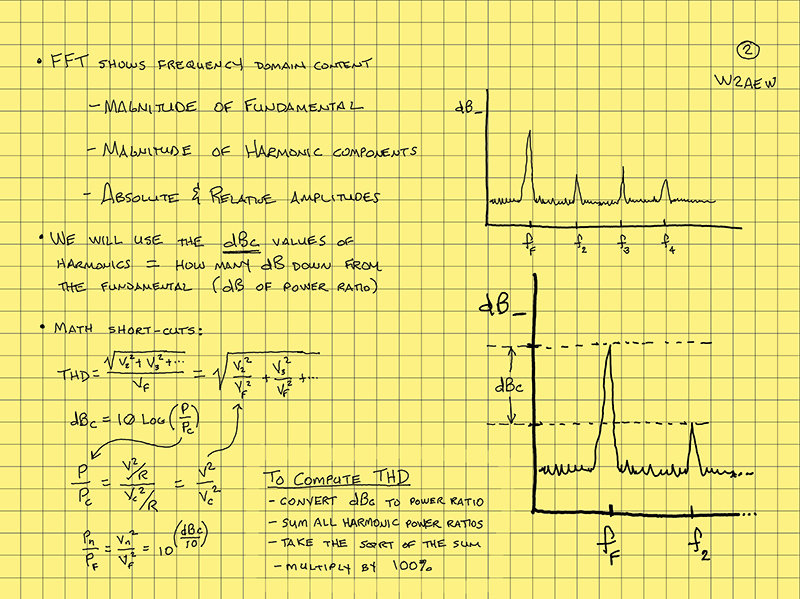 ②
W2AEW
• FFT SHOWS FREQUENCY DOMAIN CONTENT
- MAGNITUDE OF FUNDAMENTAL
- MAGNITUDE OF HARMONIC COMPONENTS
- ABSOLUTE & RELATIVE AMPLITUDES
• WE WILL USE THE dBc VALUES OF
HARMONICS = HOW MANY dB DOWN FROM
THE FUNDAMENTAL (dB OF POWER RATIO)
• MATH SHORT-CUTS:
THD = √(V₂² + V₃² + ...) / V_F = √(V₂²/V_F² + V₃²/V_F² + ...)
dBc = 10 LOG (P/P_C)
P/P_C = (V²/R)/(V_C²/R) = V²/V_C²
P_n/P_F = V_n²/V_F² = 10^(dBc/10)
TO COMPUTE THD
- CONVERT dBc TO POWER RATIO
- SUM ALL HARMONIC POWER RATIOS
- TAKE THE SQRT OF THE SUM
- MULTIPLY BY 100%
dB_
f_F f₂ f₃ f₄
dB_
dBc
f_F f₂